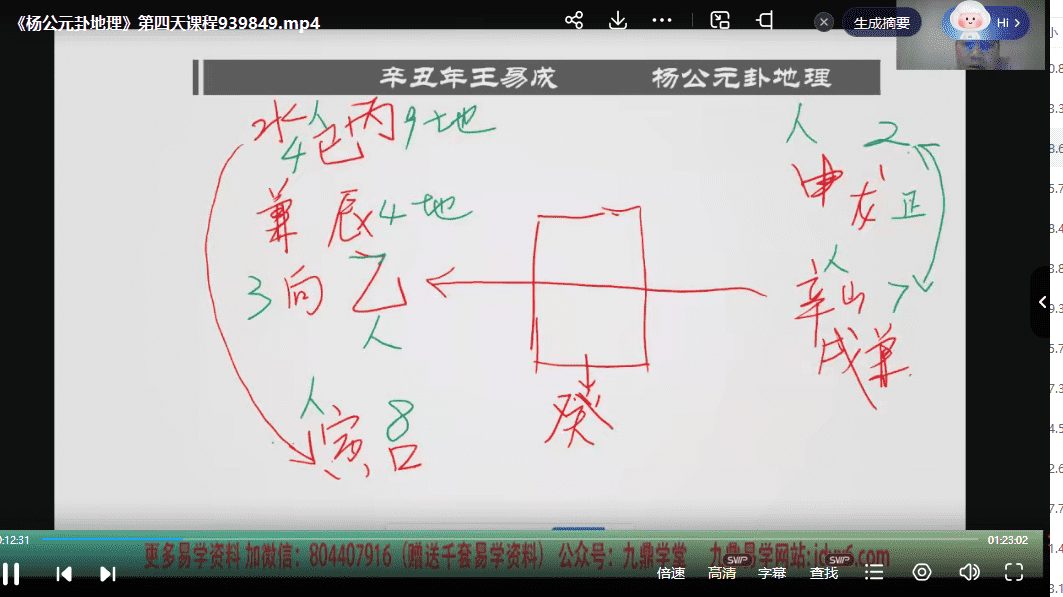 《杨公元卦地理》第四天课程939849.mp4
生成摘要
Hi >
辛丑年王易成 杨公元卦地理
水 人 巳 丙 9 地
4
人 2
申 龙 正
兼 辰 4 地
3 向 乙
人
辛山 7
人
戌兼
癸
人
寅 8
口
0:12:31
01:23:02
更多易学资料 加微信：804407916（赠送千套易学资料） 公众号：九鼎学堂
倍速 高清 SVIP 字幕 查找 SVIP